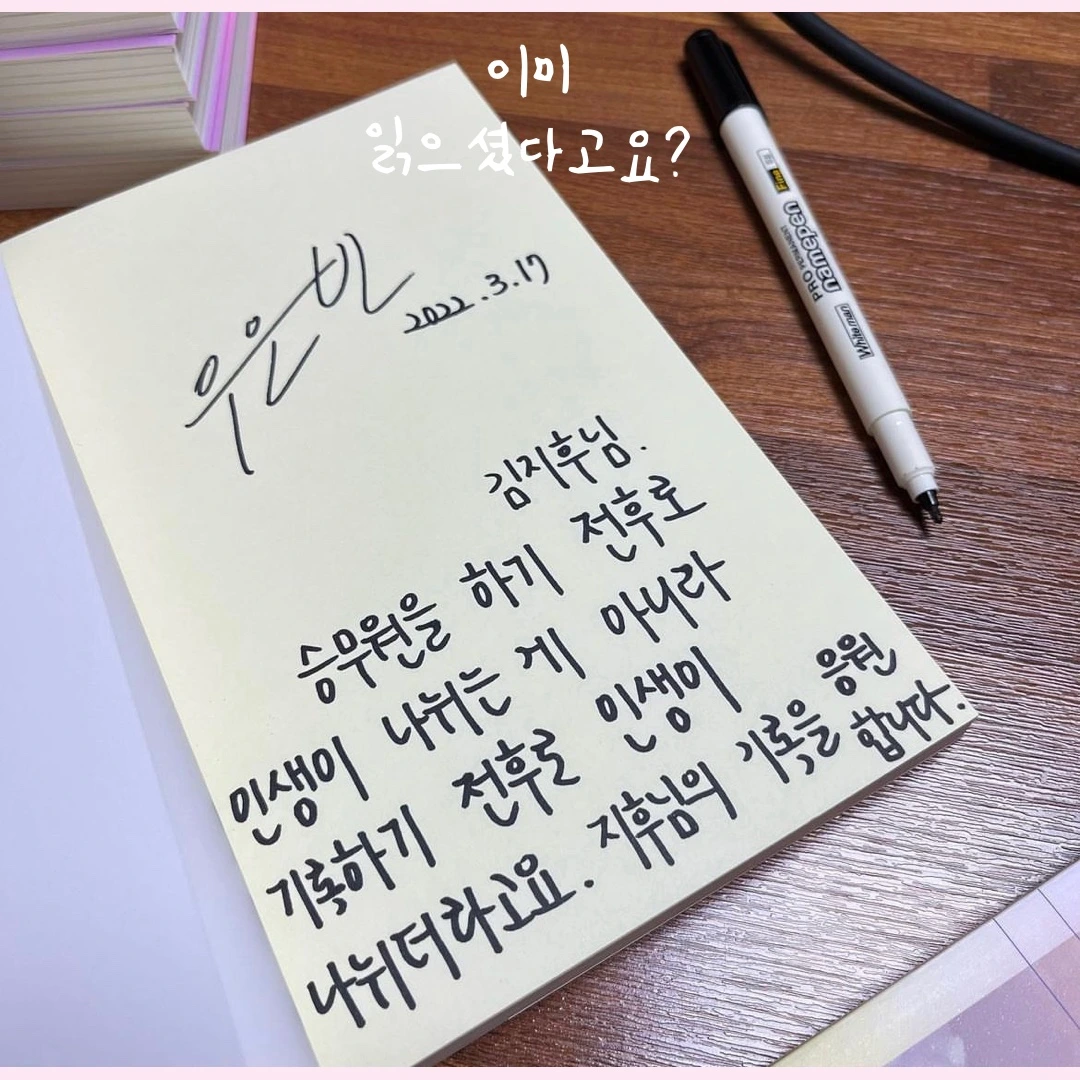 이미
읽으셨다고요?
우은빈
2022.3.17
김지후님.
승무원을 하기 전후로
인생이 나뉘는 게 아니라
기록하기 전후로 인생이
나뉘더라고요. 지후님의 기록을 응원
합니다.
Fine
PRO PERMANENT
namepen
Whiteman